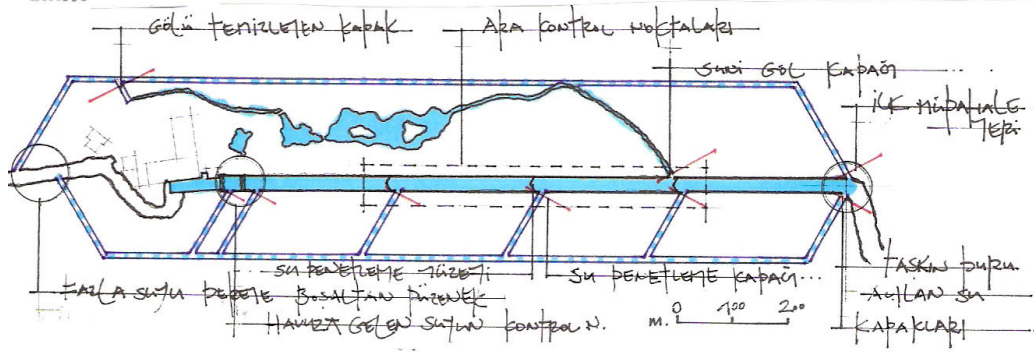 GÖLÜ TEMİZLETEN KAPAK
ARA KONTROL NOKTALARI
SUNİ GÖL KAPAĞI
İLK MÜDAHALE
YERİ
SU DENETLEME YÜZEYİ
SU DENETLEME KAPAĞI...
FAZLA SUYU DEREYE BOŞALTAN DÜZENEK
HAVUZA GELEN SUYUN KONTROL N.
m.
0 100 200
TAŞKIN DURU.
AÇILAN SU
KAPAKLARI